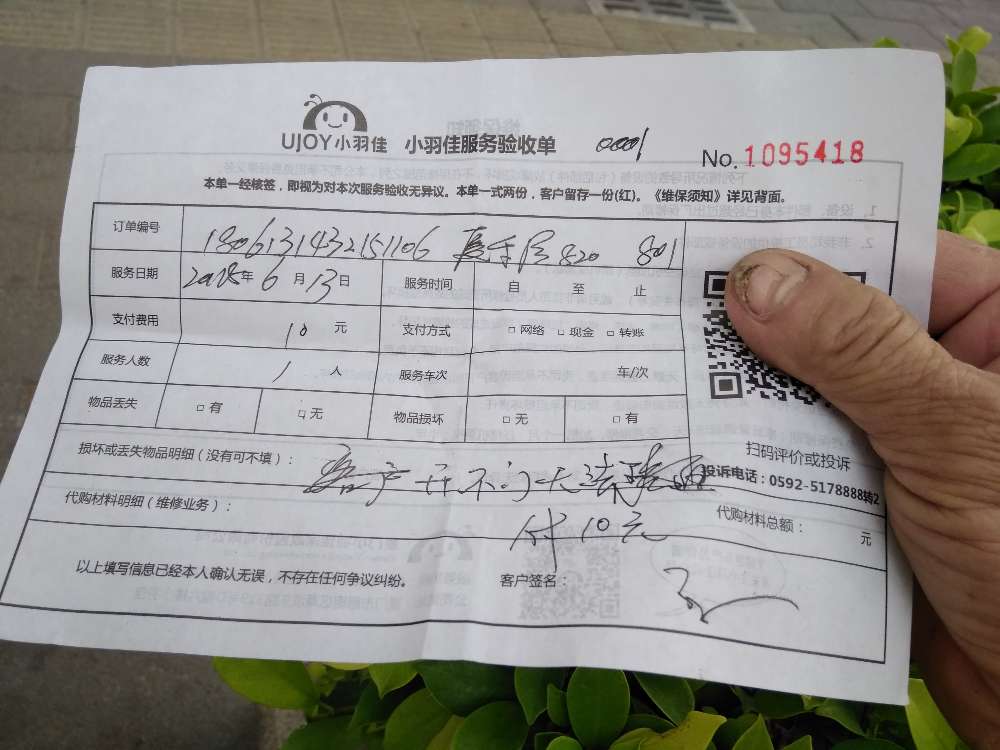 UJOY小羽佳 小羽佳服务验收单 0001 No.1095418
本单一经核签，即视为对本次服务验收无异议。本单一式两份，客户留存一份(红)。《维保须知》详见背面。
订单编号 1806131432151106 820 801
服务日期 2018年6月13日 服务时间 自 至 止
支付费用 10元 支付方式 □网络 □现金 □转账
服务人数 1人 服务车次 车/次
物品丢失 □有 □无 物品损坏 □无 □有
扫码评价或投诉
投诉电话：0592-5178888转2
损坏或丢失物品明细（没有可不填）： 客户开不门
代购材料明细（维修业务）： 付10元 代购材料总额： 元
以上填写信息已经本人确认无误，不存在任何争议纠纷。 客户签名：